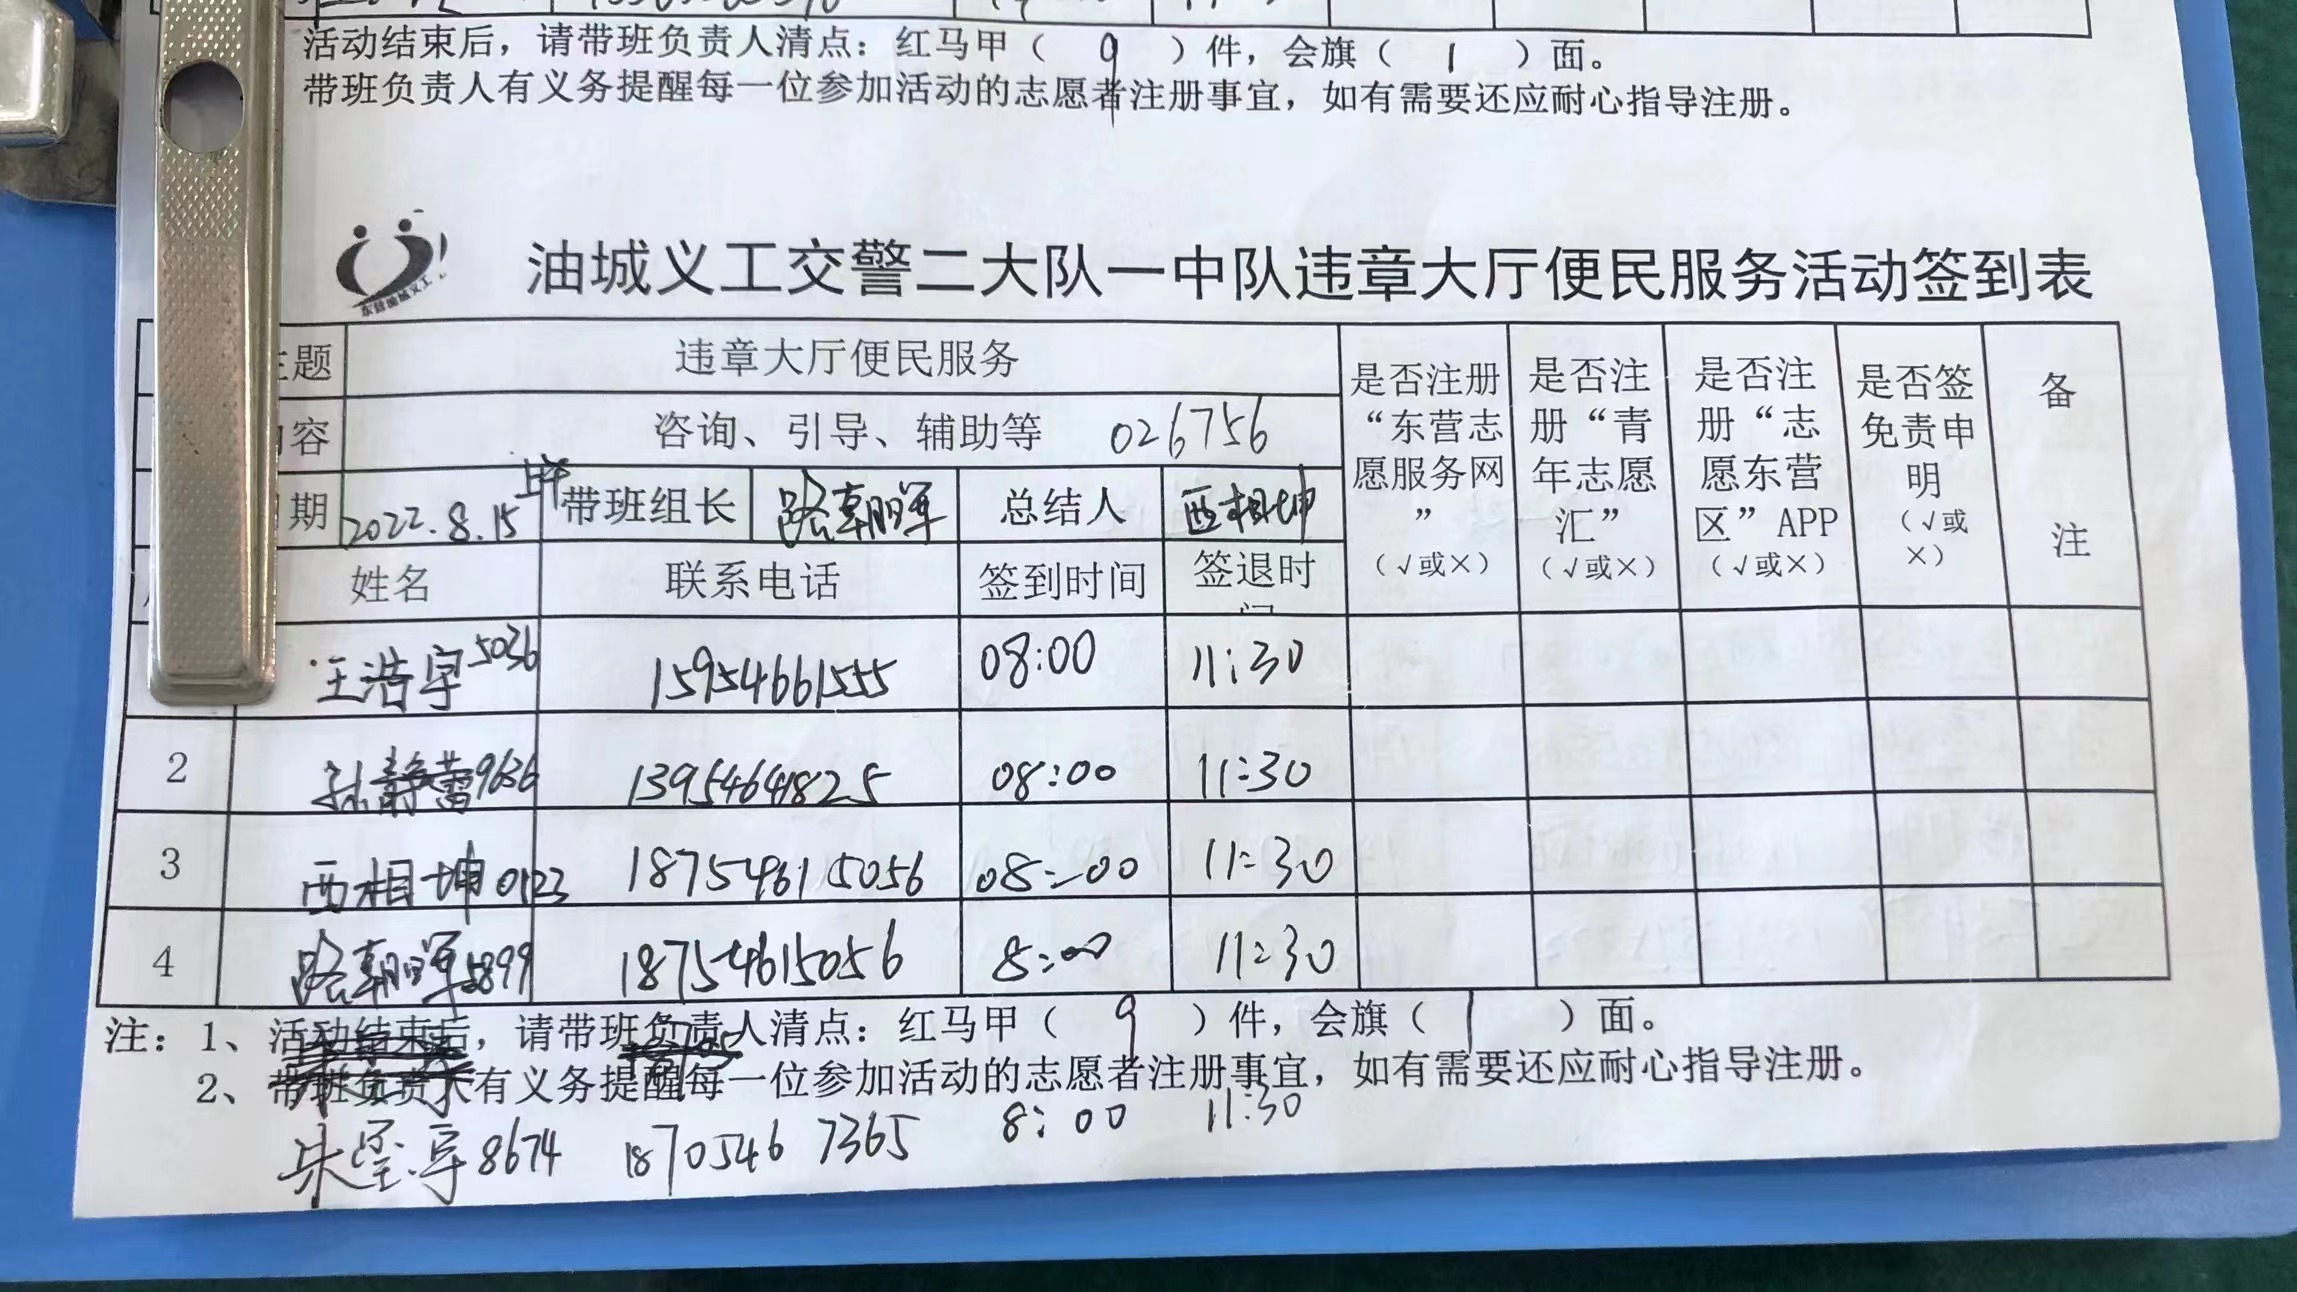 活动结束后，请带班负责人清点：红马甲（ 9 ）件，会旗（ 1 ）面。
带班负责人有义务提醒每一位参加活动的志愿者注册事宜，如有需要还应耐心指导注册。
油城义工交警二大队一中队违章大厅便民服务活动签到表
主题 违章大厅便民服务 是否注册“东营志愿服务网”（√或×） 是否注册“青年志愿汇”（√或×） 是否注册“志愿东营区”APP（√或×） 是否签免责申明（√或×） 备注
内容 咨询、引导、辅助等 026756
日期 2022.8.15 上午 带班组长 路朝晖 总结人 西相坤
姓名 联系电话 签到时间 签退时间
王浩宇5036 15954661555 08:00 11:30
2 孙静蕾9636 13954641825 08:00 11:30
3 西相坤0123 18754615056 08:00 11:30
4 路朝晖5899 18754615056 8:00 11:30
注：1、活动结束后，请带班负责人清点：红马甲（ 9 ）件，会旗（ 1 ）面。
2、带班负责人有义务提醒每一位参加活动的志愿者注册事宜，如有需要还应耐心指导注册。
8674 18705467365 8:00 11:30